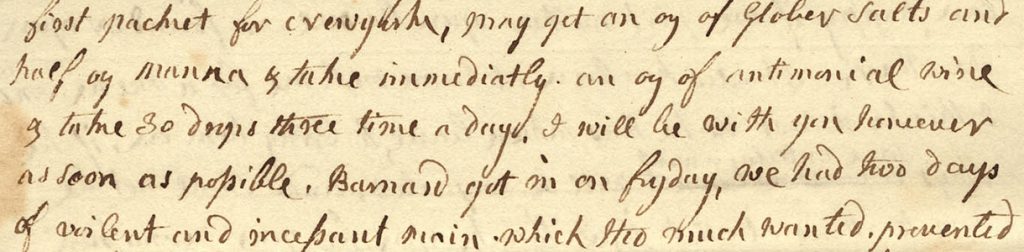 first packet for crewyark, may get an oz of Glober Salts and
half oz manna & take immediatly. an oz of antimonial wine
& take 30 drops three time a day. I will be with you however
as soon as possible. Barnard got in on fryday, we had two days
of voilent and incessant rain which tho much wanted. prevented